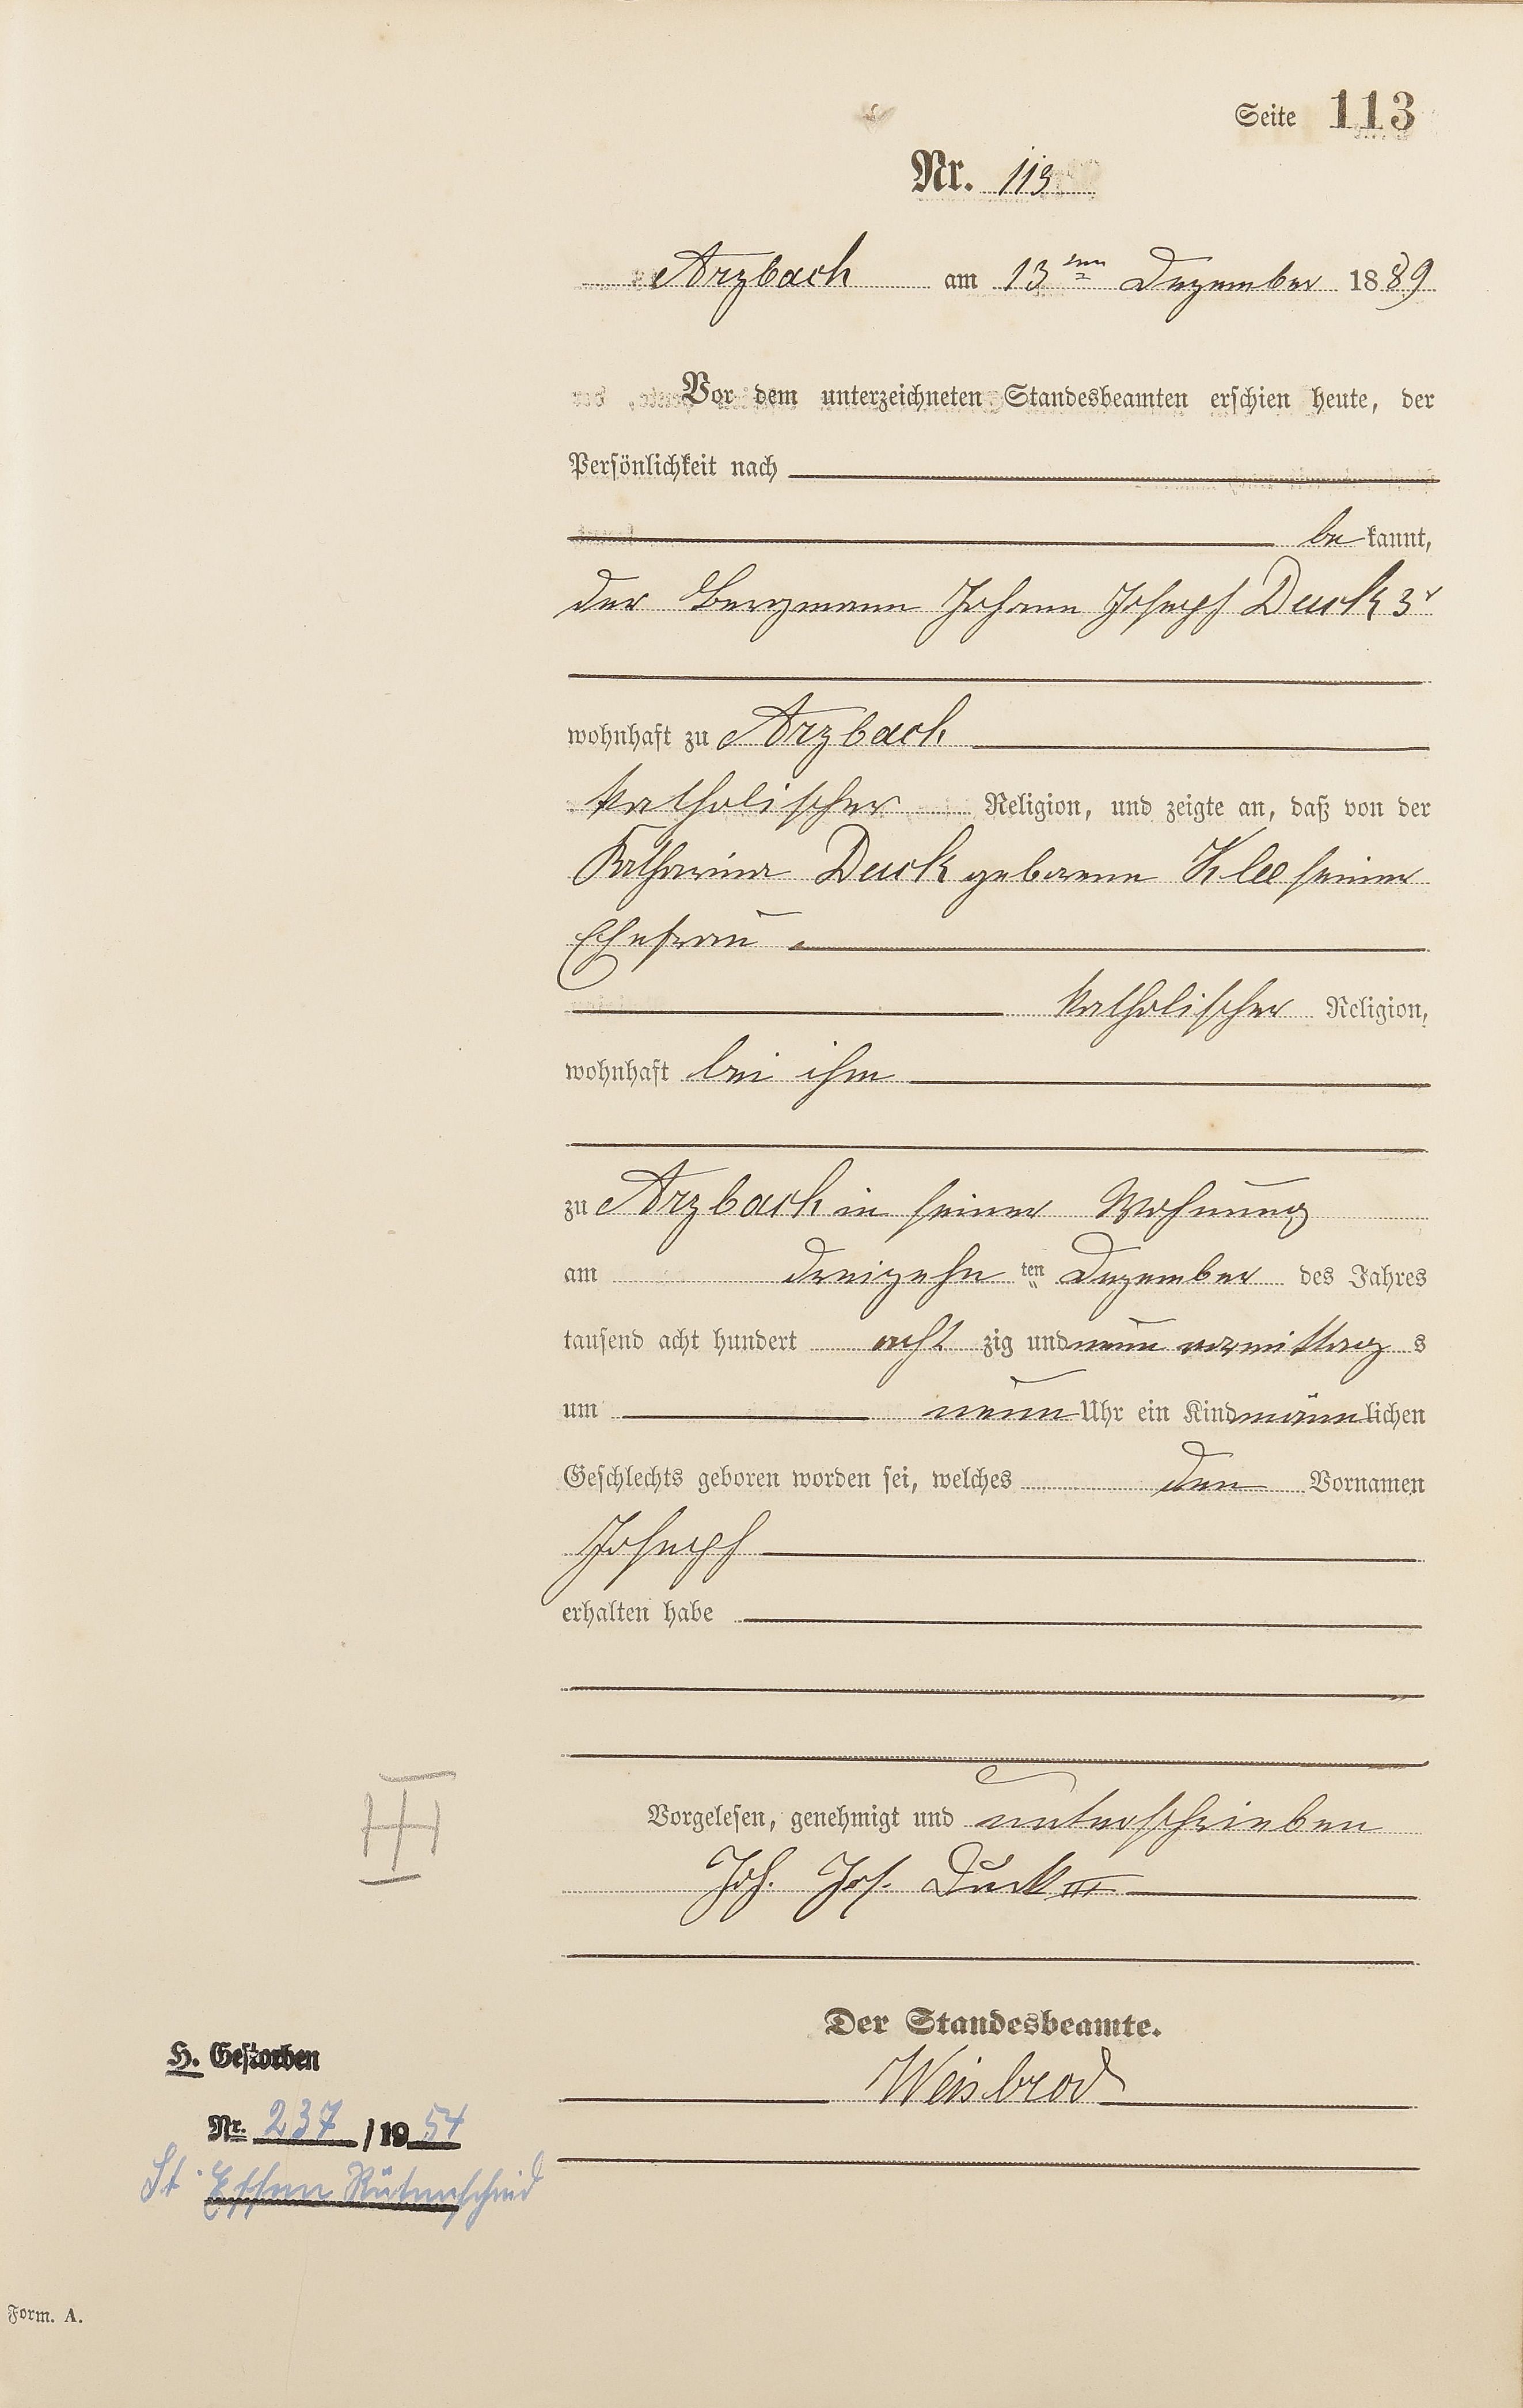 Seite 113
Nr. 113
Arzbach am 13ten Dezember 1889
Vor dem unterzeichneten Standesbeamten erschien heute, der
Persönlichkeit nach
be kannt,
der Bergmann Johann Joseph Duck 3r
wohnhaft zu Arzbach
katholischer Religion, und zeigte an, daß von der
Katharina Duck geborene Klee seiner
Ehefrau
katholischer Religion,
wohnhaft bei ihm
zu Arzbach in seiner Wohnung
am dreizehn ten Dezember des Jahres
tausend acht hundert acht zig und neun vormittag s
um neun Uhr ein Kind männlichen
Geschlechts geboren worden sei, welches den Vornamen
Joseph
erhalten habe
Vorgelesen, genehmigt und unterschrieben
Joh. Jos. Duck III
Der Standesbeamte.
Weisbrod
H. Gestorben
Nr. 237 / 1954
St. Essen Rütenscheid
Form. A.